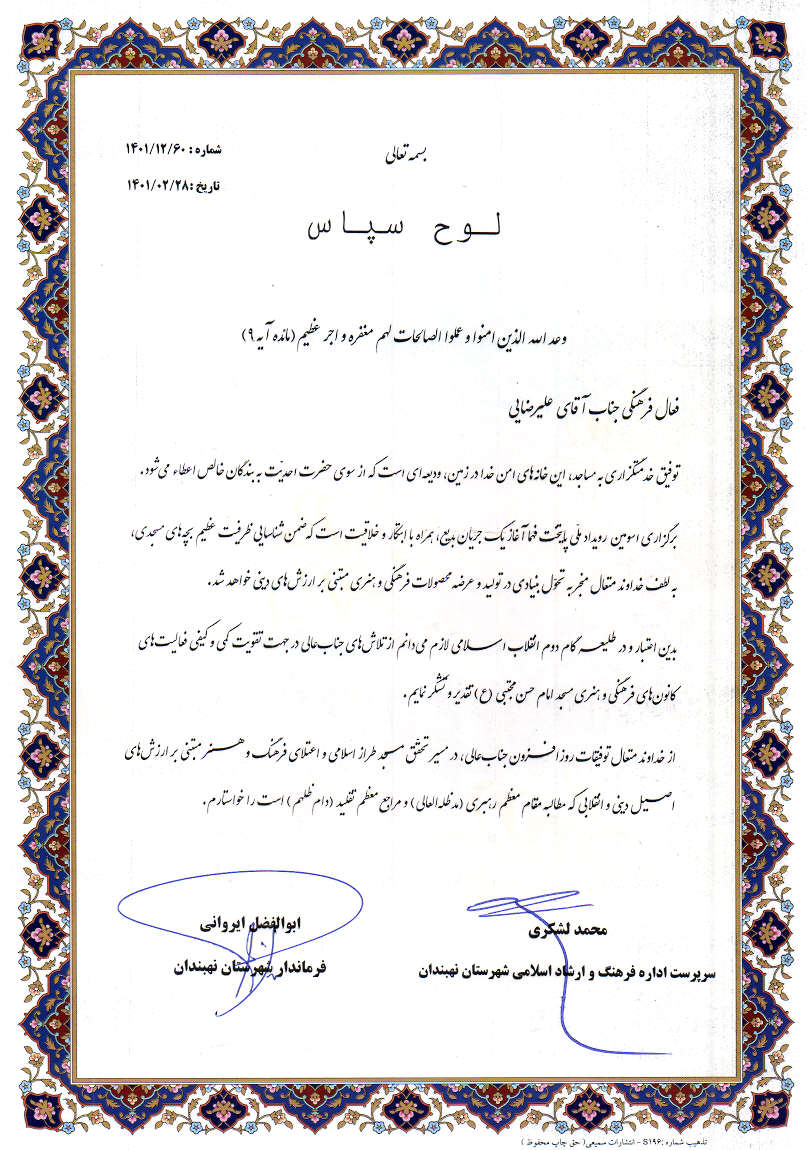 بسمه تعالی
شماره : ۱۴۰۱/۱۲/۶۰
تاریخ : ۱۴۰۱/۰۲/۲۸
لوح سپاس
وعد الله الذین امنوا و عملوا الصالحات لهم مغفره و اجر عظیم (مائده آیه ۹)
فعال فرهنگی جناب آقای علیرضایی
توفیق خدمتگزاری به مساجد، این خانه‌های امن خدا در زمین، ودیعه‌ای است که از سوی حضرت احدیّت به بندگان خالص اعطاء می‌شود.
برگزاری اسومین رویداد ملّی پایتخت فهما آغاز یک جریان بدیع، همراه با ابتکار و خلاقیت است که ضمن شناسایی ظرفیت عظیم بچه‌های مسجدی،
به لطف خداوند متعال منجر به تحوّل بنیادی در تولید و عرضه محصولات فرهنگی و هنری مبتنی بر ارزش‌های دینی خواهد شد.
بدین اعتبار و در طلیعه گام دوم انقلاب اسلامی لازم می‌دانم از تلاش‌های جناب‌عالی در جهت تقویت کمی و کیفی فعالیت‌های
کانون‌های فرهنگی و هنری مسجد امام حسن مجتبی (ع) تقدیر و تشکر نمایم.
از خداوند متعال توفیقات روز افزون جناب‌عالی، در مسیر تحقّق مسجد طراز اسلامی و اعتلای فرهنگ و هنر مبتنی بر ارزش‌های
اصیل دینی و انقلابی که مطالبه مقام معظم رهبری (مدظله العالی) و مراجع معظم تقلید (دام ظلهم) است را خواستارم.
محمد لشکری
سرپرست اداره فرهنگ و ارشاد اسلامی شهرستان نهبندان
ابوالفضل ایروانی
فرماندار شهرستان نهبندان
تذهیب شماره :S۱۹۶ - انتشارات سمیعی( حق چاپ محفوظ )